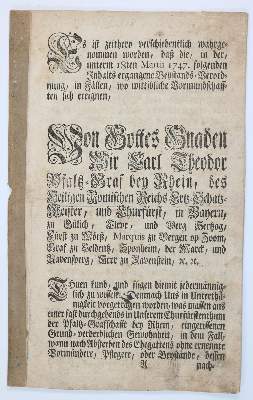 Es ist zeithero verschiedentlich wahrge-
nommen worden, daß die, in der,
unterm 18ten Martii 1747. folgenden
Inhalts ergangene Beystands-Verord-
nung, in Fällen, wo wittibliche Vormundschaff-
ten sich ereignen,
Von Gottes Gnaden
Wir Carl Theodor
Pfaltz-Graf bey Rhein, des
Heiligen Römischen Reichs Ertz-Schatz-
Meister, und Churfürst, in Bayern,
zu Gülich, Cleve, und Berg Hertzog,
Fürst zu Mörß, Marquis zu Bergen op Zoom,
Graf zu Veldentz, Sponheim, der Marck, und
Ravensperg, Herr zu Ravenstein, ꝛc. ꝛc.
Thuen kund, und fügen hiemit jedermännig-
lich zu wissen: Demnach Uns in Unterthä-
nigkeit vorgetragen worden, was massen aus
einer fast durchgehends in Unserem Churfürstenthum
der Pfaltz-Graffschafft bey Rhein, eingerissenen
Grund-verderblichen Gewohnheit, in dem Fall,
wann nach Absterben des Ehegattens ohne ernennte
Vormündere, Pflegere, oder Beystände, dessen
A nach-